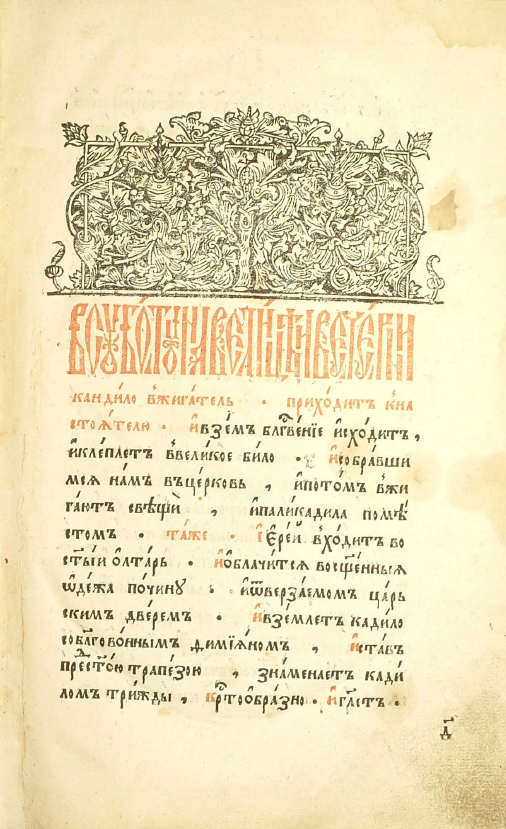 В̾ СУББО́ТУ НА ВЕЛИ́ЦѢЙ ВЕЧЕ́РНИ
кандило вжига́тель · прихо́дитъ кна
стоѧ́телю · И҆взе́мъ блг҃ве́нїе и҆схо́дитъ,
и҆кле́плетъ в̾вели́кое би́ло · И҆собра́вши
мсѧ на́мъ въце́рковь , и҆пото́мъ в̾жи
га́ютъ свѣщи̑ , и҆пали́кадила помѣ́
стомъ · та́же · І҆ере́й вхо́дитъ во
ст҃ы́й о҆лта́рь · И҆облачи́тсѧ восщ҃е́нныѧ
ѡ҆де́жа по́чину · и҆ѿверза́емомъ ца́рь
скимъ две́ремъ · И҆взе́млетъ кади́ло
собл҃гово́ннымъ димїѧ́номъ , и҆ста́въ
прест҃о́ю трапе́зою , зна́менаетъ кади́
ломъ три́жды , кр҃тоо́бразно · и҆гл҃етъ ·
д҃